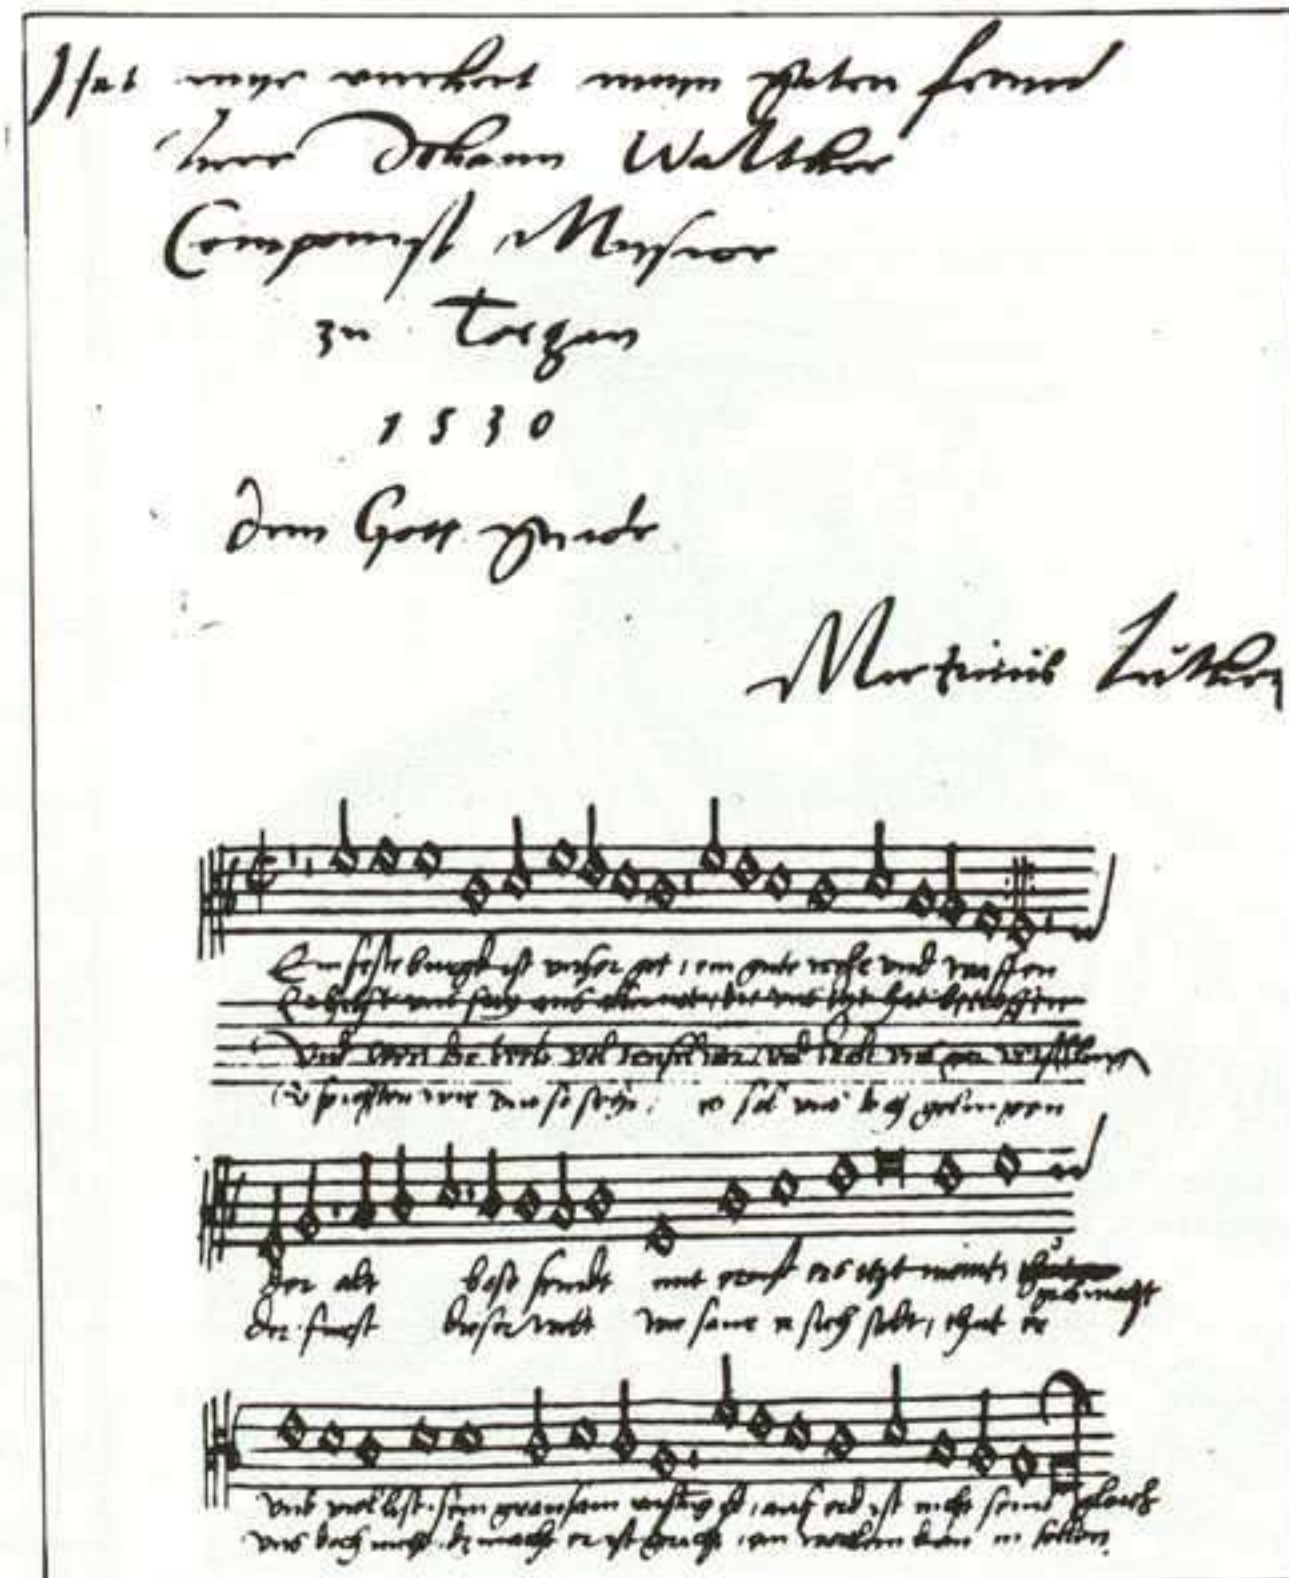 Hat myr verehret meyn guter freund
herr Johann Walther
Componist Musice
zu Torgaw
1530
dem Gott gnade
Martinus Luther
Ein feste burgk ist unser got, ein gute wehr und waffen
Er hilfft uns frey aus aller not, die uns itzt hat betroffen
Und wenn die welt vol teufel wer, und wolt uns gar verschlingen
so furchten wir uns so seer, es sol uns doch gelingen
der alt bose feindt mit ernst ers itzt meint, gros macht
der furst dieser welt wie saur er sich stelt, thut er
und viel list sein grausam rustung ist, auf erd ist nicht seins gleich
uns doch nicht das macht er ist gericht, ein wortlein kan in fellen